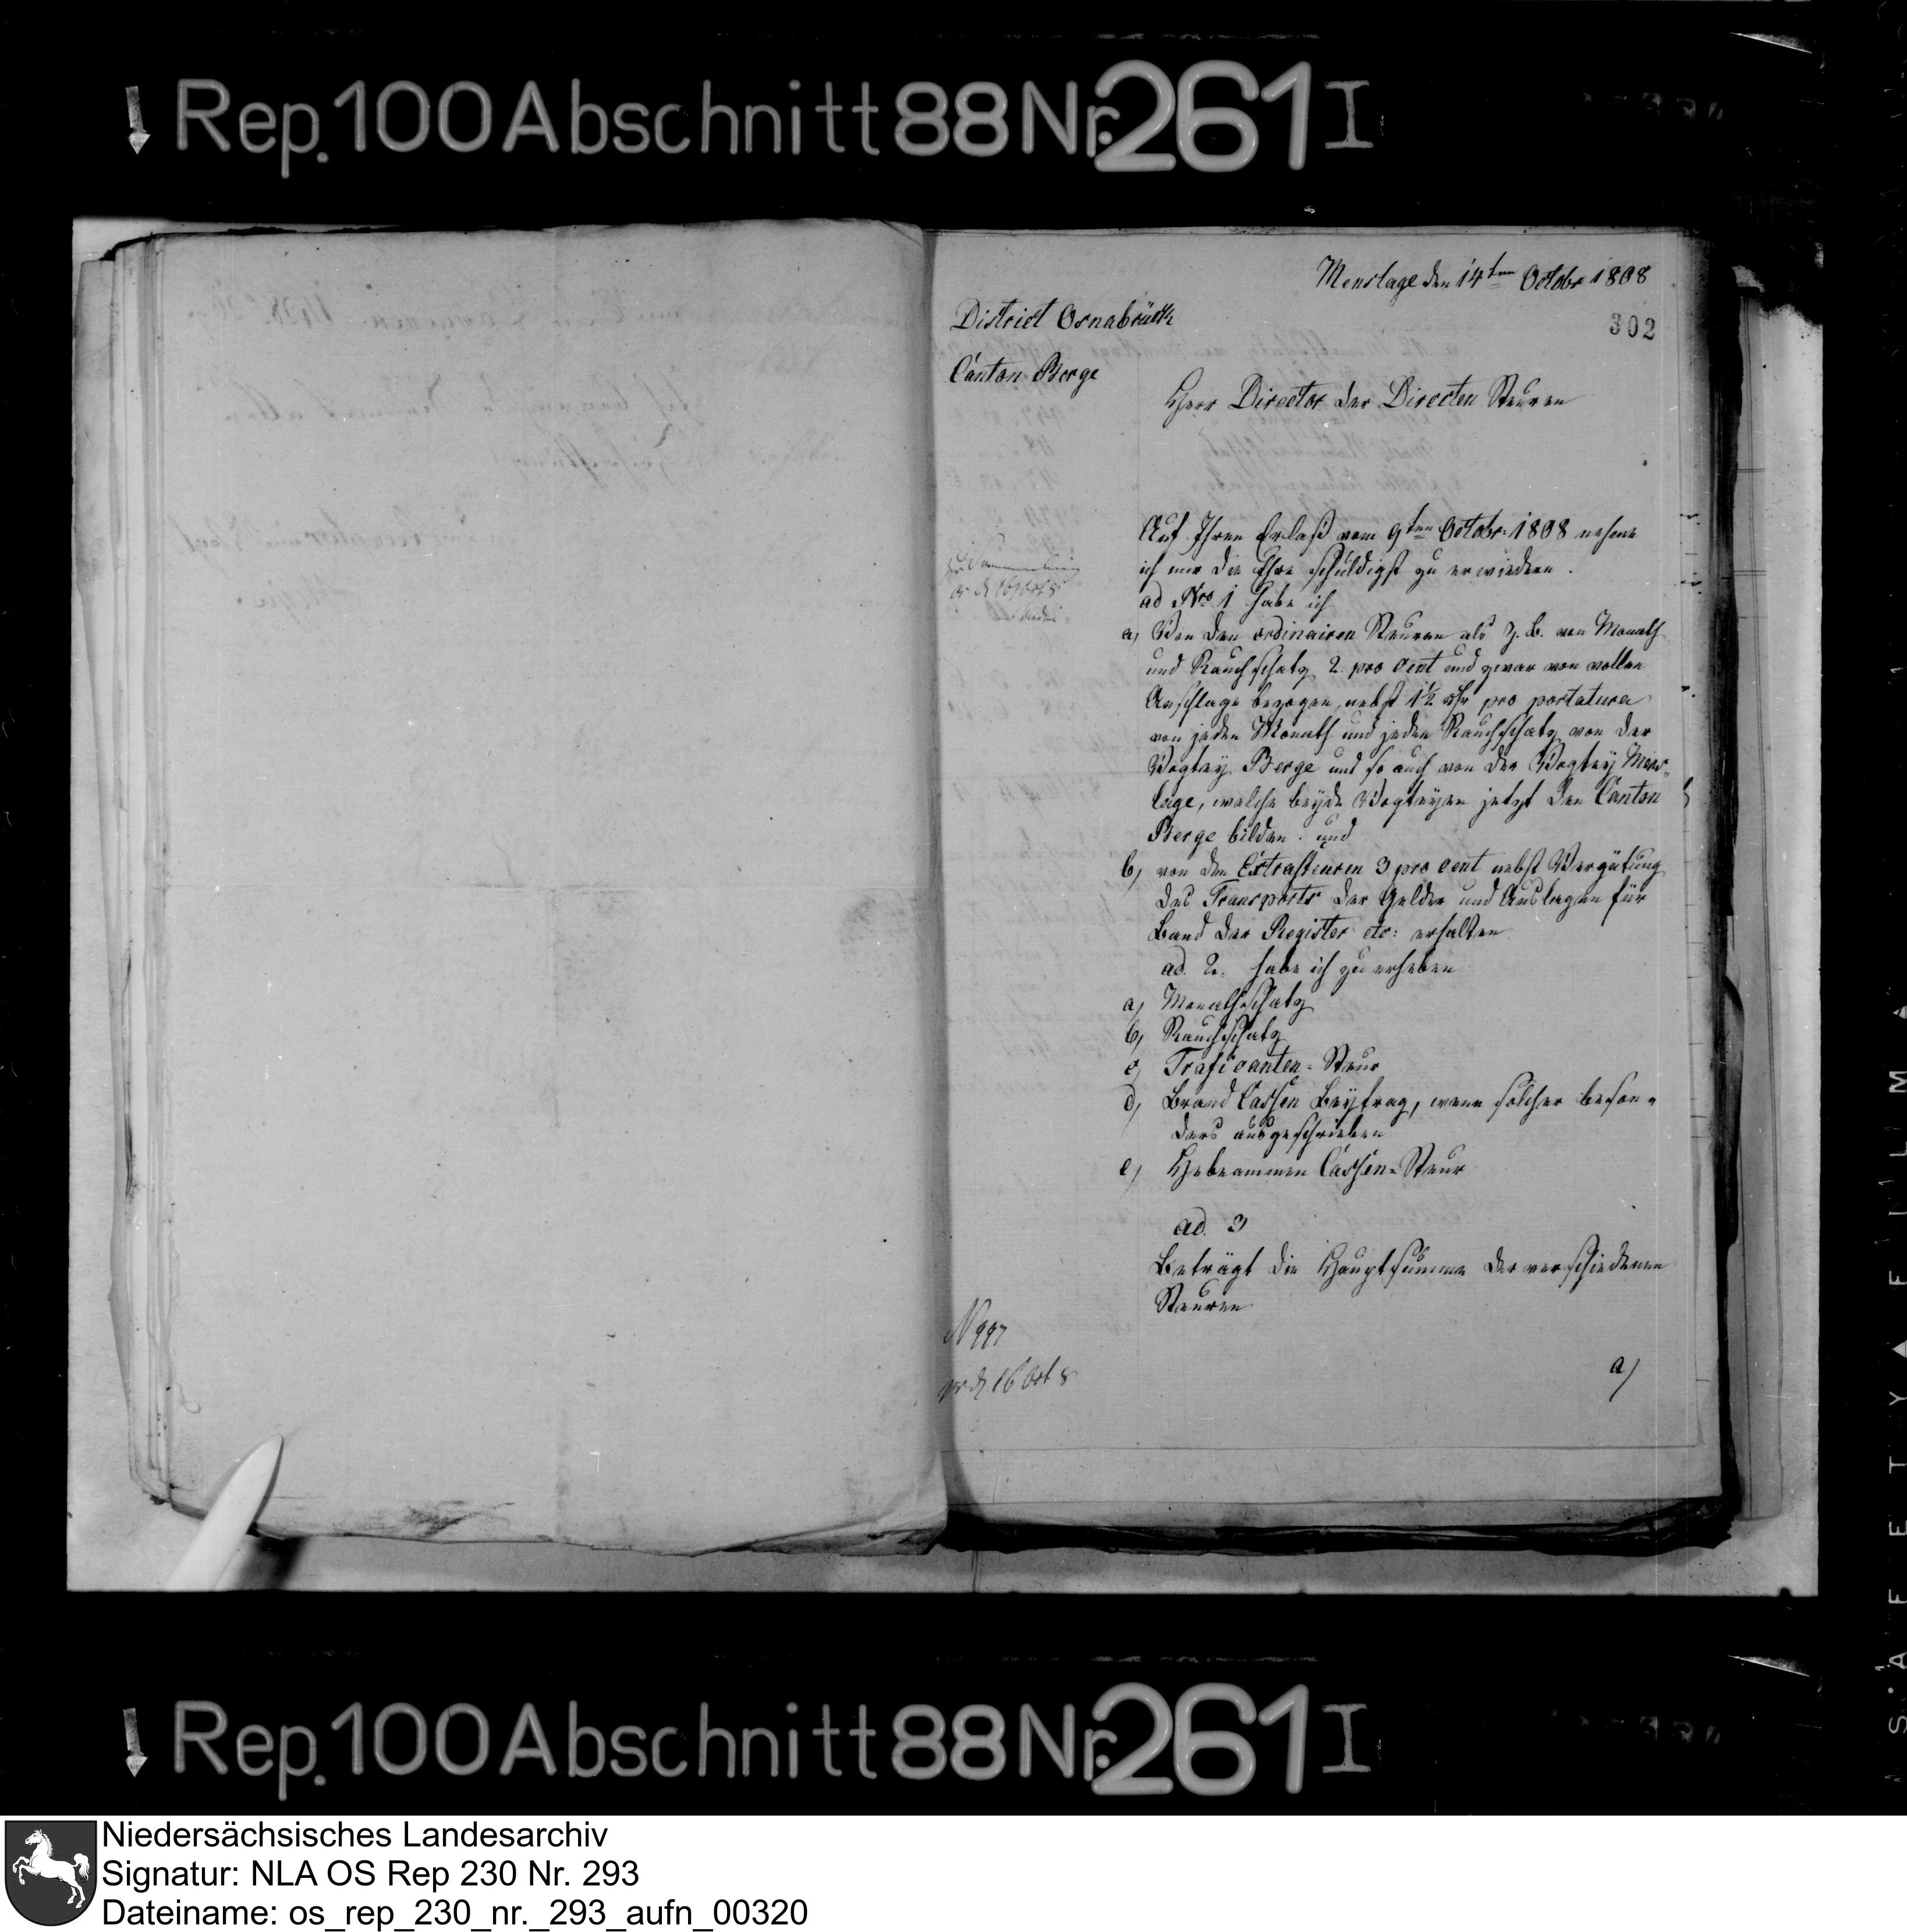 Rep. 100 Abschnitt 88 Nr. 261 I
Menslage den 14ten Octobr 1808
District Osnabrück
302
Canton Berge
Herr Director der Directen Steuren
Auf Ihren Erlaß vom 9ten Octobr. 1808 nehme
ich mir die Ehre schuldigst zu erwiedern.
ad Nro 1 habe ich
a) Von den ordinairen Steuren als z. B. von Monath
und Rauchschatz 2. pro Cent und zwar von vollen
Anschlage bezogen, nebst 1½ pro portatura
von jeden Monath und jeden Rauchschatz von der
Vogtey Berge und so auch von der Vogtey Mens-
lage, welche beyde Vogteyen jetzt den Canton
Berge bilden. und
b) von den Extrasteuren 3 pro cent nebst Vergütung
des Transports der Gelder und Auslagen für
Band der Register etc: erhalten
ad. 2. habe ich zu erheben
a) Monathschatz
b) Rauchschatz
c) Traficanten-Steur
d) Brand Cassen Beytrag, wenn solcher beson-
ders ausgeschrieben
e) Hebeammen Cassen-Steur
ad. 3
Beträgt die Hauptsumme der verschiedenen
Steuren
N 997
16 Oct 8
a)
Rep. 100 Abschnitt 88 Nr. 261 I
SAFETY FILM
Niedersächsisches Landesarchiv
Signatur: NLA OS Rep 230 Nr. 293
Dateiname: os_rep_230_nr._293_aufn_00320